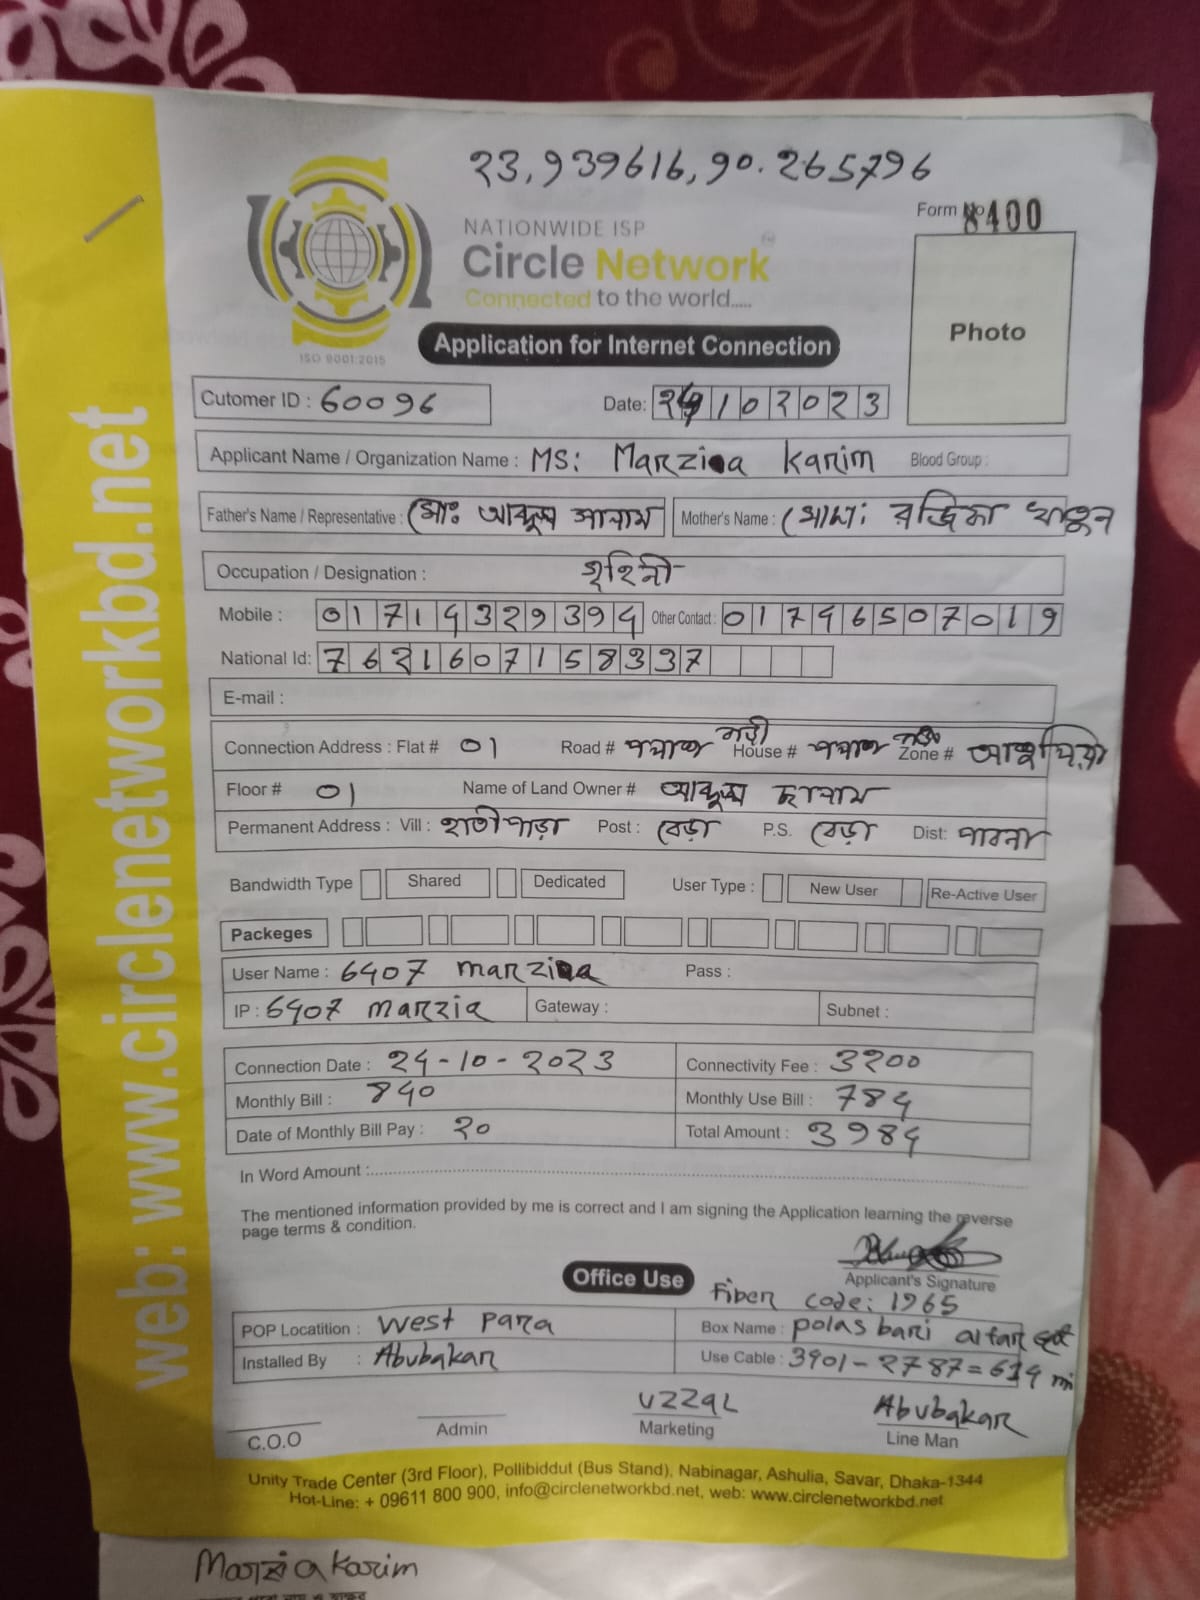 23.939616, 90.265796
NATIONWIDE ISP
Circle Network
Connected to the world.....
ISO 9001:2015
Form No 8400
Photo
Application for Internet Connection
Cutomer ID : 60096
Date: 24102023
Applicant Name / Organization Name : MS: Marzia Karim Blood Group :
Father's Name / Representative : মোঃ আব্দুল Mother's Name : মোছা: খাতুন
Occupation / Designation : গৃহিনী
Mobile : 01714329394 Other Contact : 01746507019
National Id: 7621607158337
E-mail :
Connection Address : Flat # 01 Road # পলাশ বাড়ী House # পলাশ বাড়ী Zone #
Floor # 01 Name of Land Owner # আব্দুল
Permanent Address : Vill : হাতীপাড়া Post : বেড়া P.S. বেড়া Dist: পাবনা
Bandwidth Type Shared Dedicated User Type : New User Re-Active User
Packeges
User Name : 6407 marzia Pass :
IP : 6407 marzia Gateway : Subnet :
Connection Date : 24-10-2023 Connectivity Fee : 3200
Monthly Bill : 840 Monthly Use Bill : 784
Date of Monthly Bill Pay : 20 Total Amount : 3984
In Word Amount :
The mentioned information provided by me is correct and I am signing the Application learning the reverse
page terms & condition.
Applicant's Signature
Office Use
Fiber code: 1965
POP Locatition : West para Box Name : polas bari altar
Installed By : Abubakar Use Cable : 3401 - 2787 = 614 mi
C.O.O
Admin
Uzzal
Marketing
Abubakar
Line Man
Unity Trade Center (3rd Floor), Pollibiddut (Bus Stand), Nabinagar, Ashulia, Savar, Dhaka-1344
Hot-Line: + 09611 800 900, info@circlenetworkbd.net, web: www.circlenetworkbd.net
web: www.circlenetworkbd.net
Marzia Karim